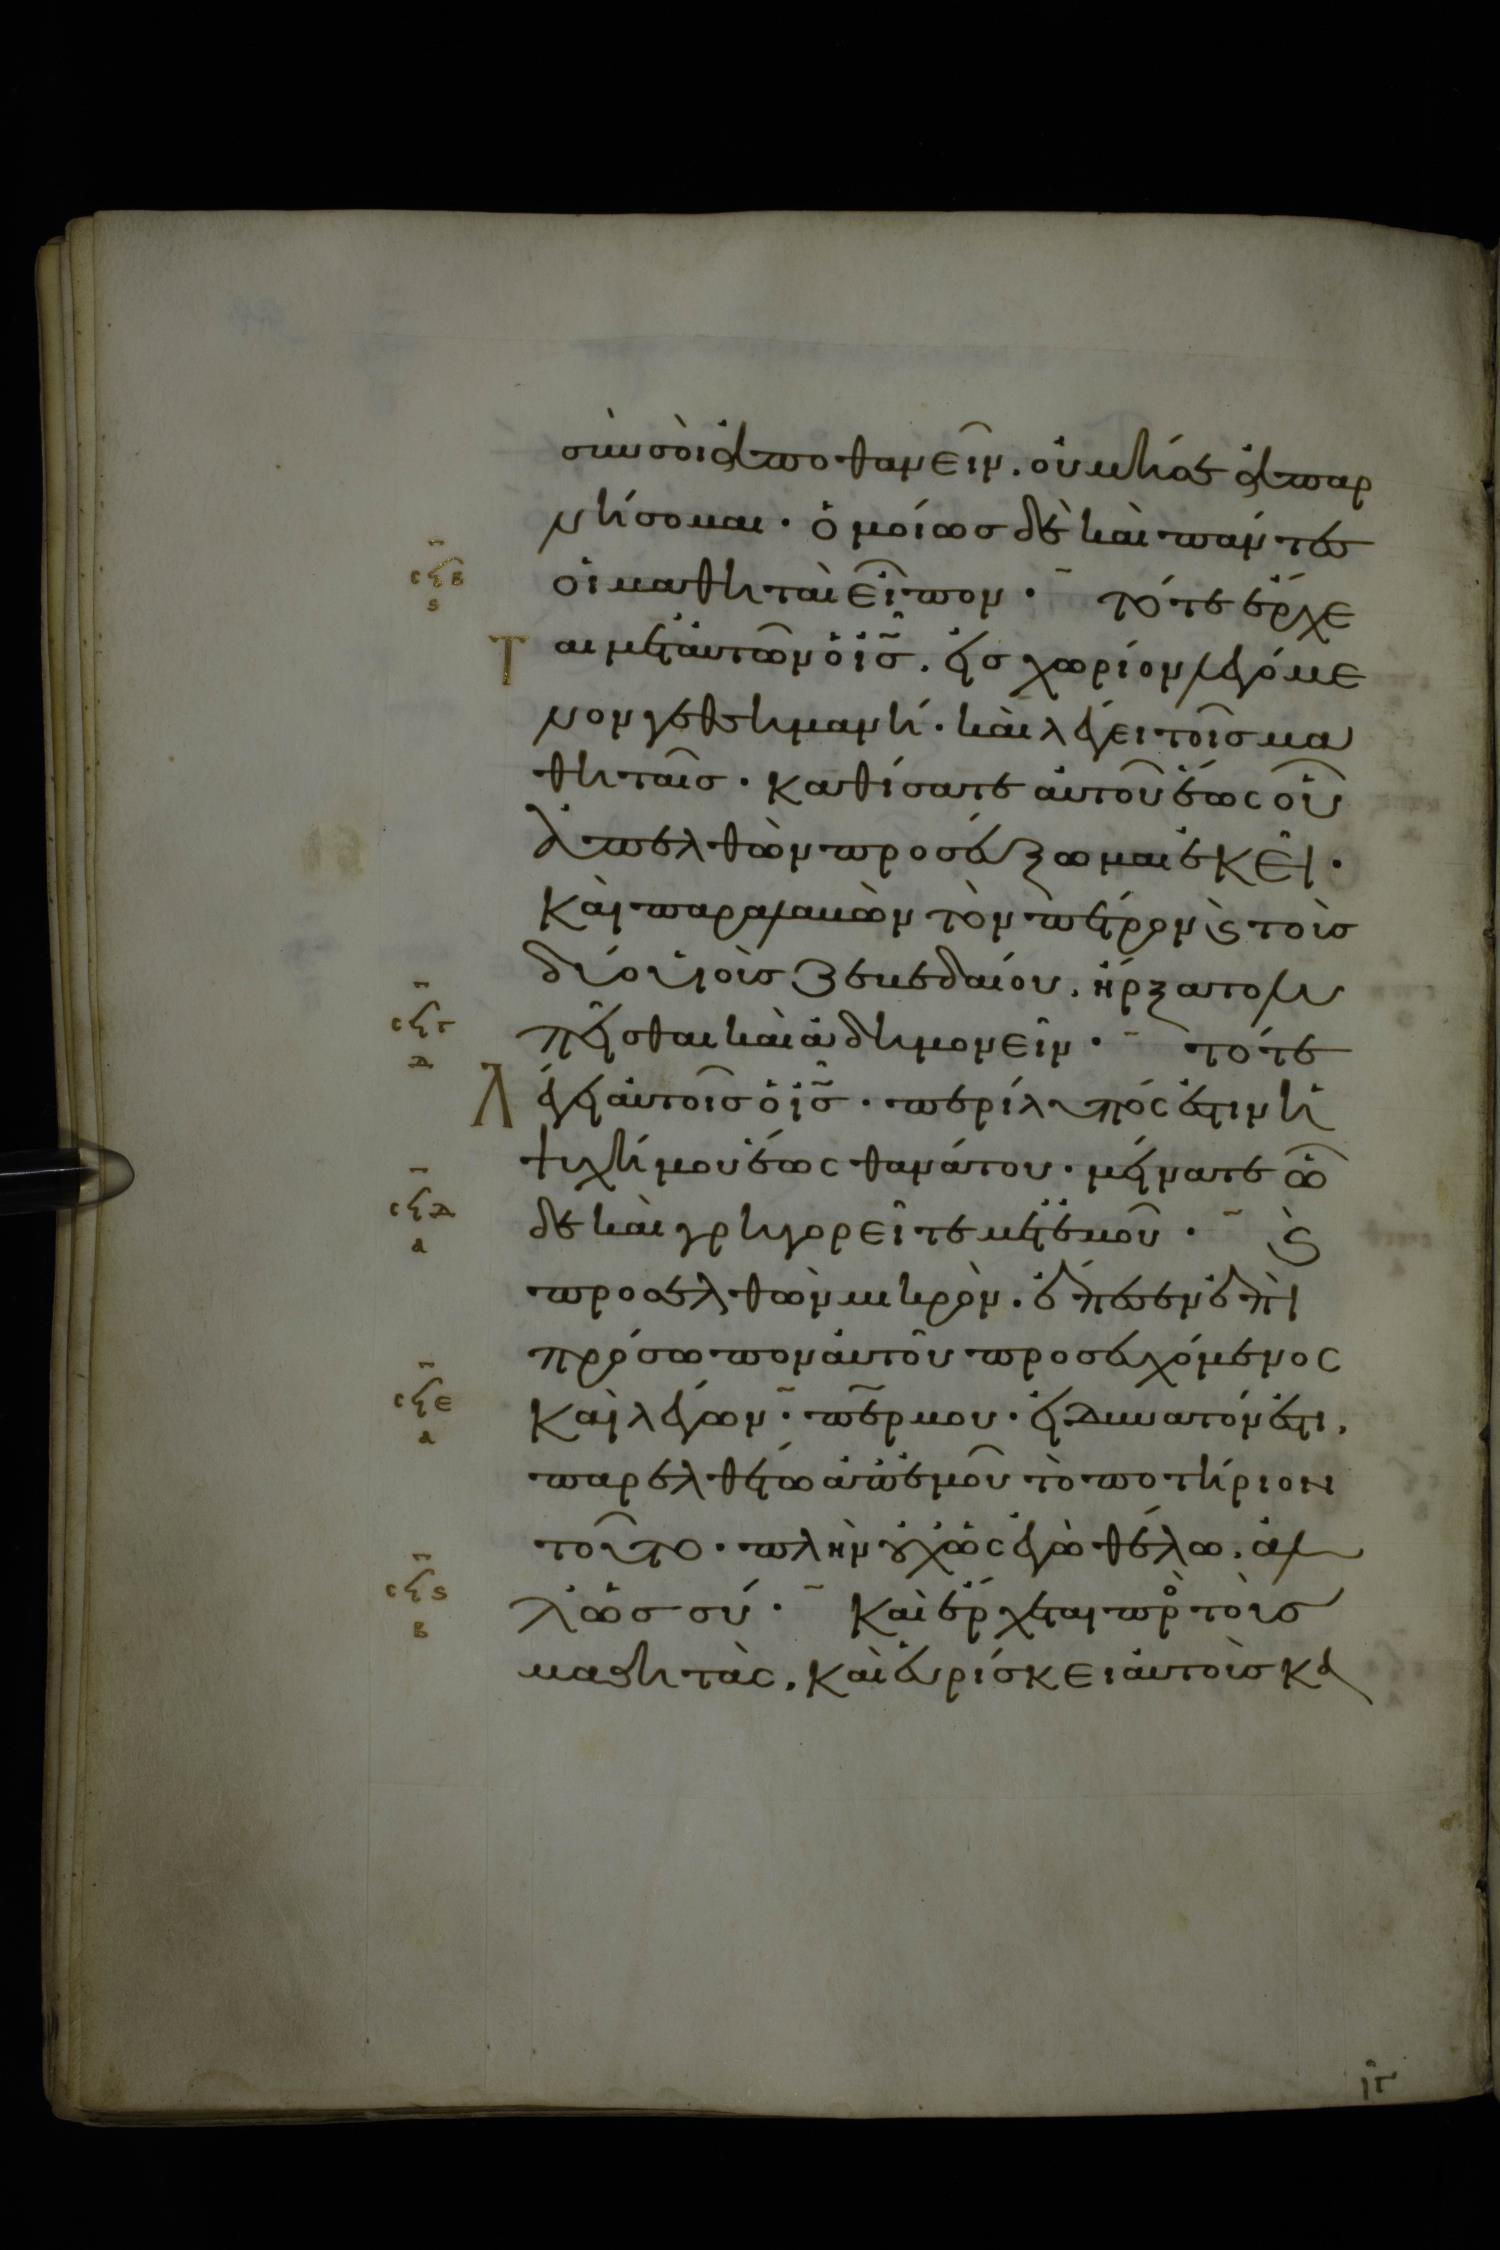 σὺν σοὶ ἀποθανεῖν. οὐ μή σε ἀπαρ
νήσομαι· ὁμοίως δὲ καὶ πάντες
σϟβ
ϛ
οἱ μαθηταὶ εἶπον· τότε ἔρχε
Ταὶ μετ' αὐτῶν ὁ ἰς̅. εἰς χωρίον λεγόμε
νον γεθσημανή· καὶ λέγει τοῖς μα
θηταῖς· καθίσατε αὐτοῦ ἕως οὗ
ἀπελθὼν προσεύξωμαι ἐκεῖ·
καὶ παραλαβὼν τὸν πέτρον ϗ τοὺς
δύο υἱοὺς ζεβεδαίου. ἤρξατο λυ
σϟγ
δ
πεῖσθαι καὶ ἀδημονεῖν· τότε
Λέγει αὐτοῖς ὁ ἰς̅· περίλυπός ἐστιν ἡ
ψυχή μου ἕως θανάτου· μείνατε ὧ
σϟδ
α
δε καὶ γρηγορεῖτε μετ' ἐμοῦ· ϗ
προσελθὼν μικρὸν. ἔπεσεν ἐπὶ
πρόσωπον αὐτοῦ προσευχόμενος
σϟε
α
καὶ λέγων· πε̅ρ μου· εἰ δυνατόν ἐστι.
παρελθέτω ἀπ' ἐμοῦ τὸ ποτήριον
τοῦτο· πλὴν οὐχ ὡς ἐγὼ θέλω. ἀλ
σϟϛ
β
λ' ὡς σύ· καὶ ἔρχεται πρὸς τοὺς
μαθητὰς. καὶ εὑρίσκει αὐτοὺς κα
ιγ